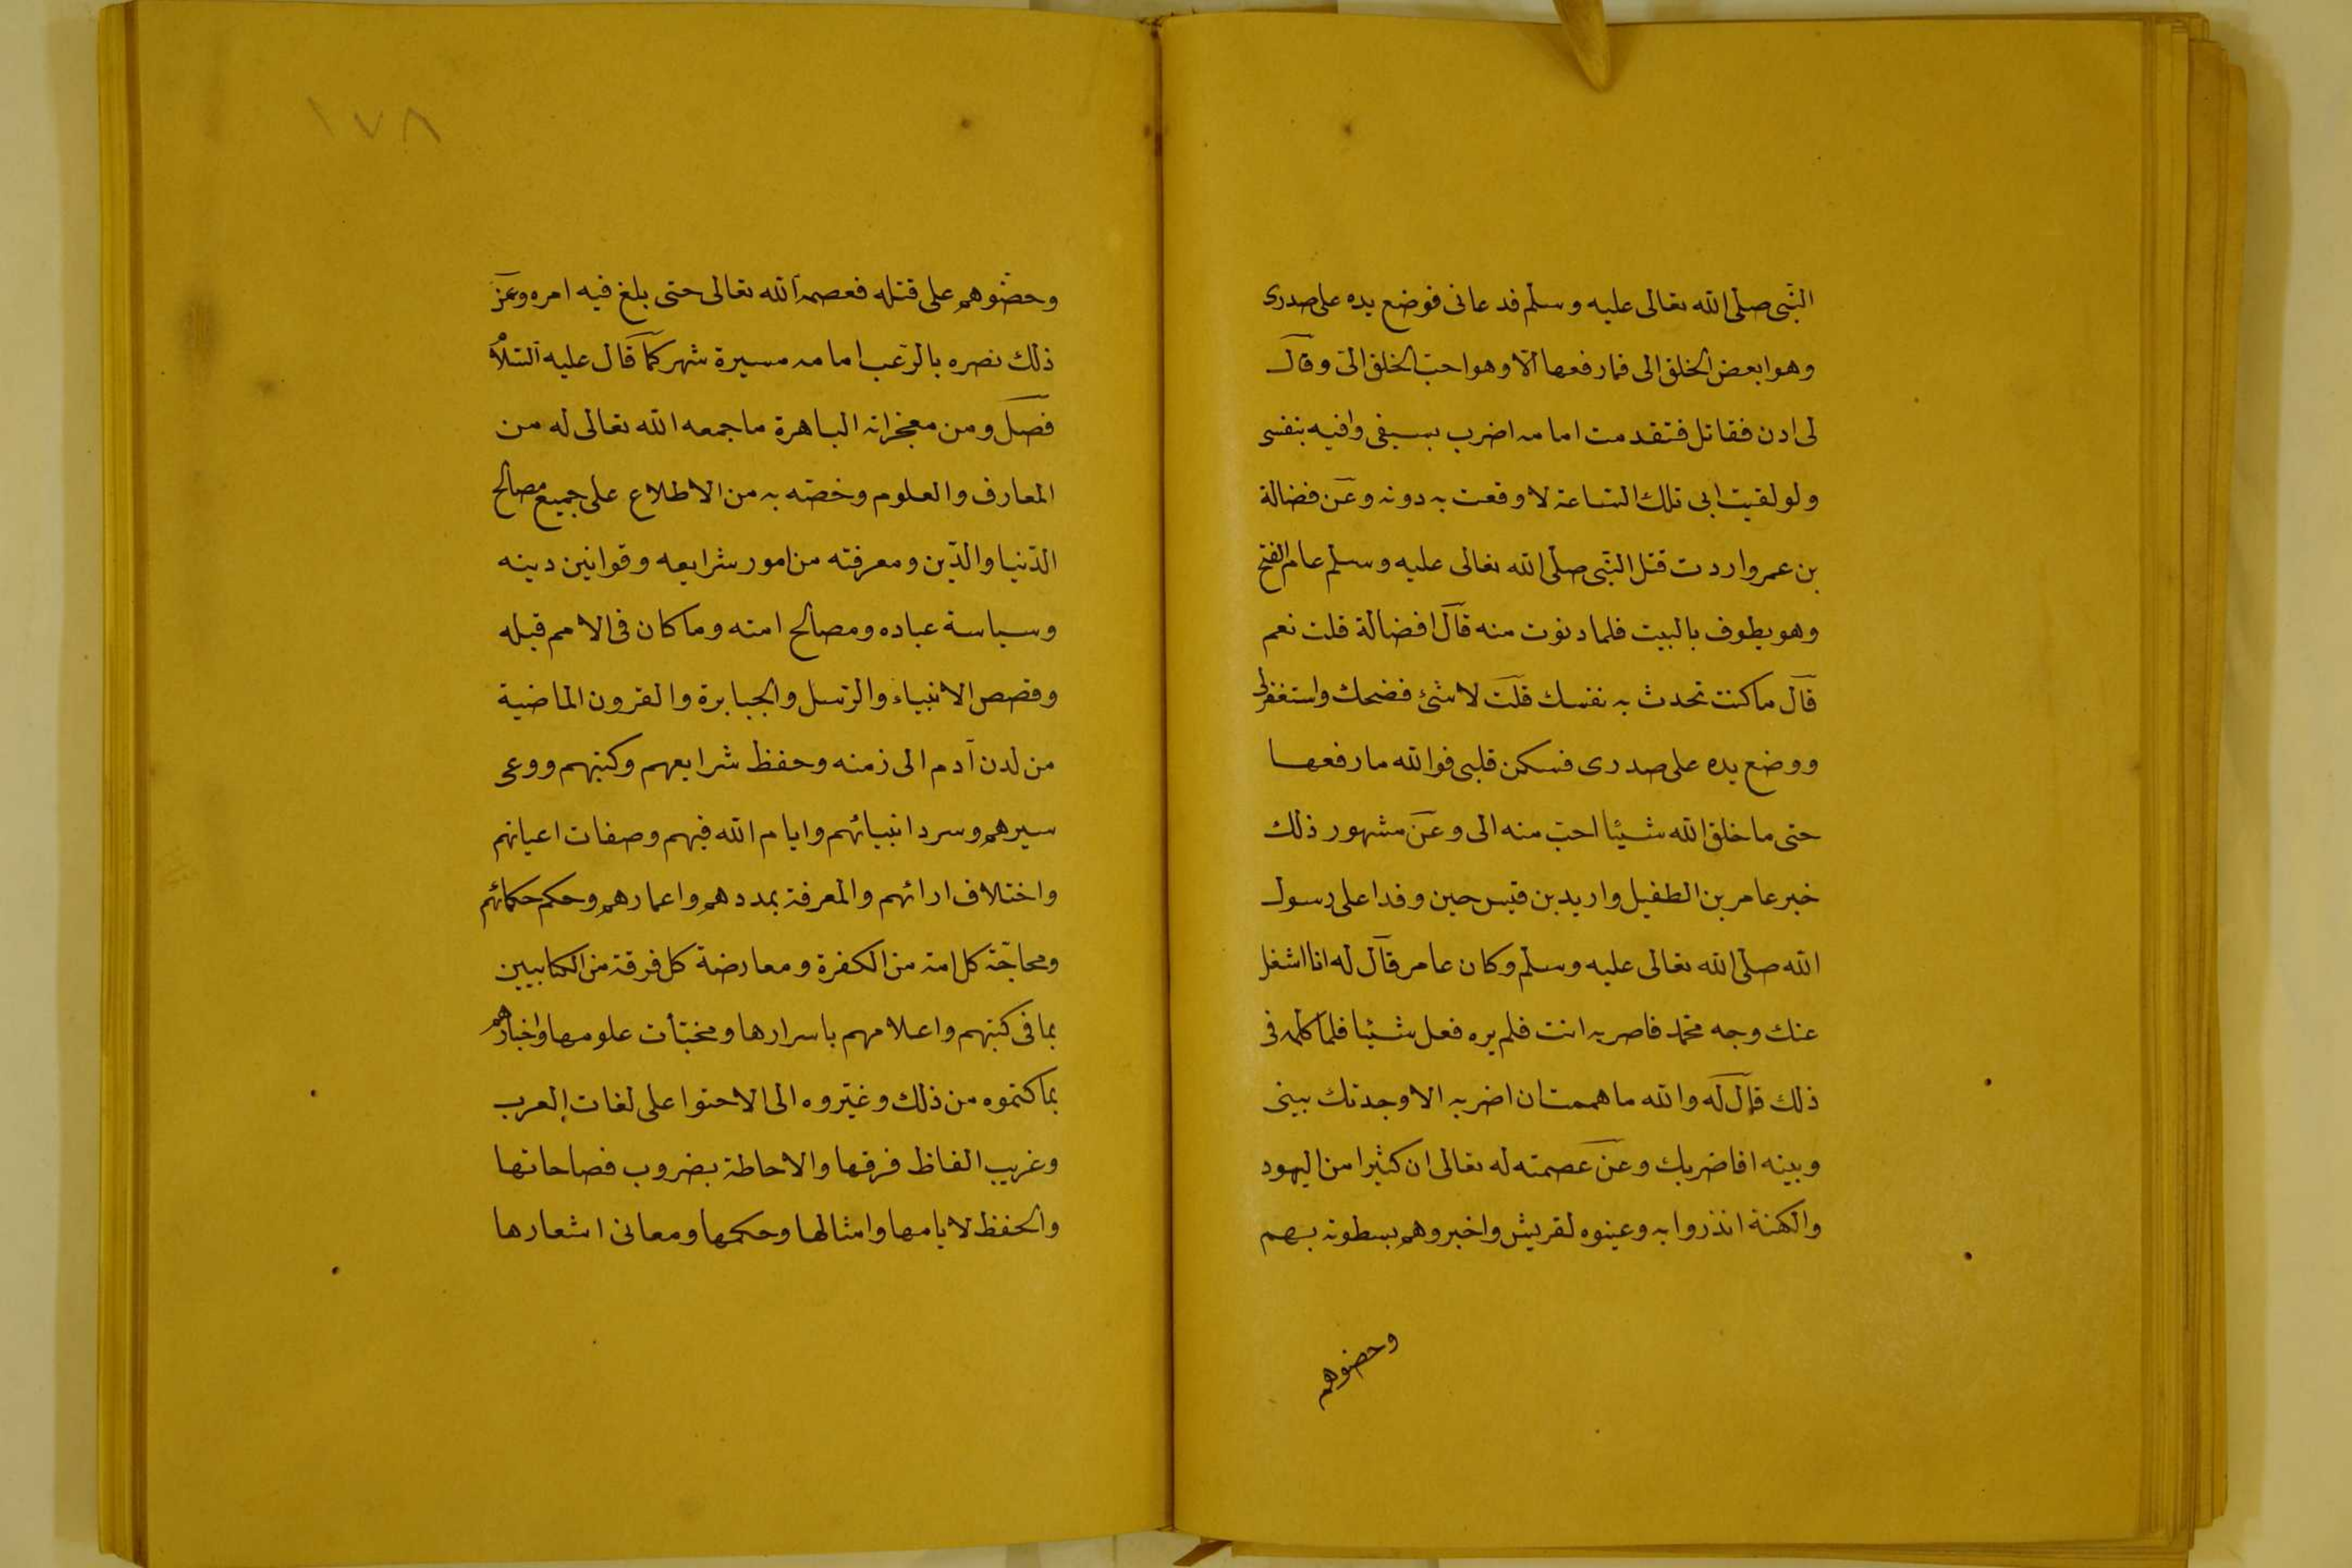 النبى صلى الله تعالى عليه وسلم فدعانى فوضع يده على صدرى
وهو ابغض الخلق الى فما رفعها الا وهو احب الخلق الىّ وقال
لى ادن فقاتل فتقدمت امامه اضرب بسيفى واقيه بنفسى
ولو لقيت ابى تلك الساعة لاوقعت به دونه وعن فضالة
بن عمرو اردت قتل النبى صلى الله تعالى عليه وسلم عام الفتح
وهو يطوف بالبيت فلما دنوت منه قال افضالة قلت نعم
قال ما كنت تحدث به نفسك قلت لا شئ فضحك واستغفر لى
ووضع يده على صدرى فسكن قلبى فوالله ما رفعها
حتى ما خلق الله شيئا احب منه الى وعن مشهور ذلك
خبر عامر بن الطفيل واربد بن قيس حين وفدا على رسول
الله صلى الله تعالى عليه وسلم وكان عامر قال له انا اشغل
عنك وجه محمد فاضربه انت فلم يره فعل شيئا فلما كلمه فى
ذلك قال له والله ما هممت ان اضربه الا وجدتك بينى
وبينه افاضربك وعن عصمته له تعالى ان كثيرا من اليهود
والكهنة انذروا به وعينوه لقريش واخبروهم بسطوته بهم
وحضوهم
١٧٨
وحضّوهم على قتله فعصمه الله تعالى حتى بلغ فيه امره وعن
ذلك نصره بالرعب امامه مسيرة شهر كما قال عليه السلام
فصل ومن معجزاته الباهرة ما جمعه الله تعالى له من
المعارف والعلوم وخصّه به من الاطلاع على جميع مصالح
الدّنيا والدّين ومعرفته من امور شرايعه وقوانين دينه
وسياسة عباده ومصالح امته وما كان فى الامم قبله
وقصص الانبياء والرّسل والجبابرة والقرون الماضية
من لدن آدم الى زمنه وحفظ شرايعهم وكتبهم ووعى
سيرهم وسرد انبيائهم وايام الله فيهم وصفات اعيانهم
واختلاف ارائهم والمعرفة بمددهم واعمارهم وحكم حكمائهم
ومحاجّة كل امة من الكفرة ومعارضة كل فرقة من الكتابيين
بما فى كتبهم واعلامهم باسرارها ومخبئات علومها واخبارهم
بما كتموه من ذلك وغيّروه الى الاحتوا على لغات العرب
وغريب الفاظ فرقها والاحاطة بضروب فصاحاتها
والحفظ لايامها وامثالها وحكمها ومعانى اشعارها